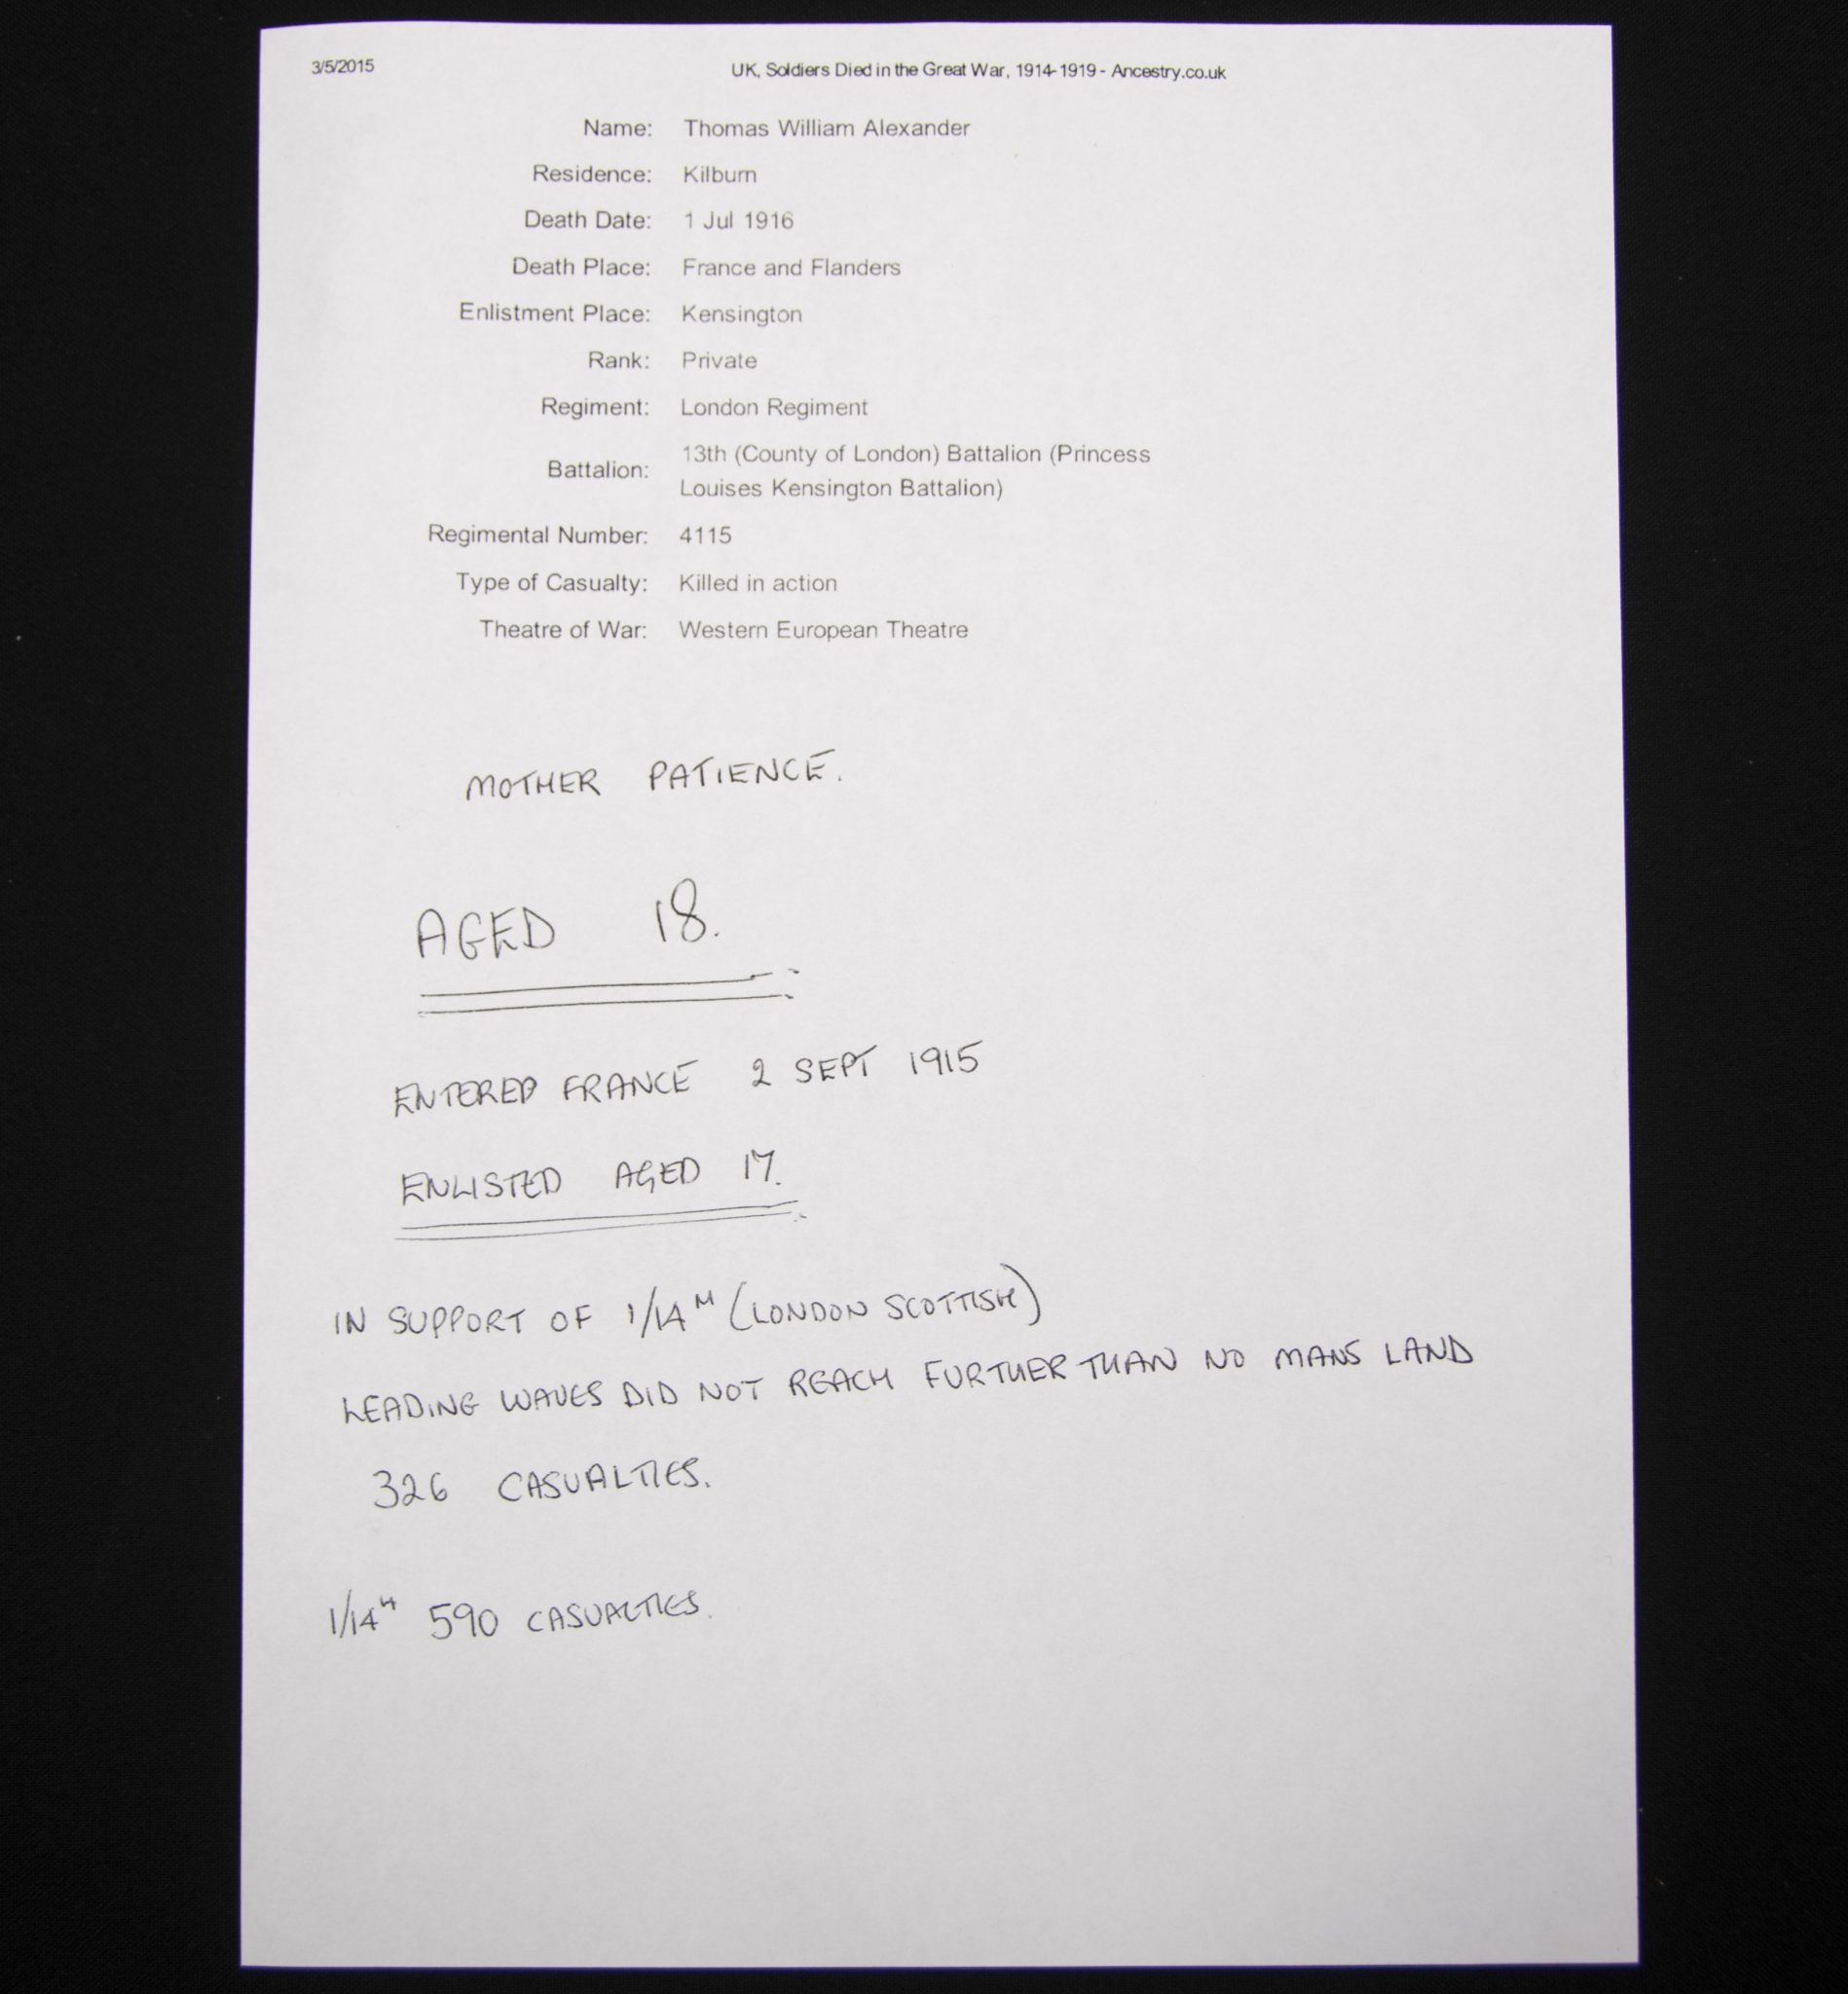 3/5/2015 UK, Soldiers Died in the Great War, 1914-1919 - Ancestry.co.uk
Name: Thomas William Alexander
Residence: Kilburn
Death Date: 1 Jul 1916
Death Place: France and Flanders
Enlistment Place: Kensington
Rank: Private
Regiment: London Regiment
Battalion: 13th (County of London) Battalion (Princess
Louises Kensington Battalion)
Regimental Number: 4115
Type of Casualty: Killed in action
Theatre of War: Western European Theatre
MOTHER PATIENCE.
AGED 18.
ENTERED FRANCE 2 SEPT 1915
ENLISTED AGED 17.
IN SUPPORT OF 1/14TH (LONDON SCOTTISH)
LEADING WAVES DID NOT REACH FURTHER THAN NO MANS LAND
326 CASUALTIES.
1/14TH 590 CASUALTIES.